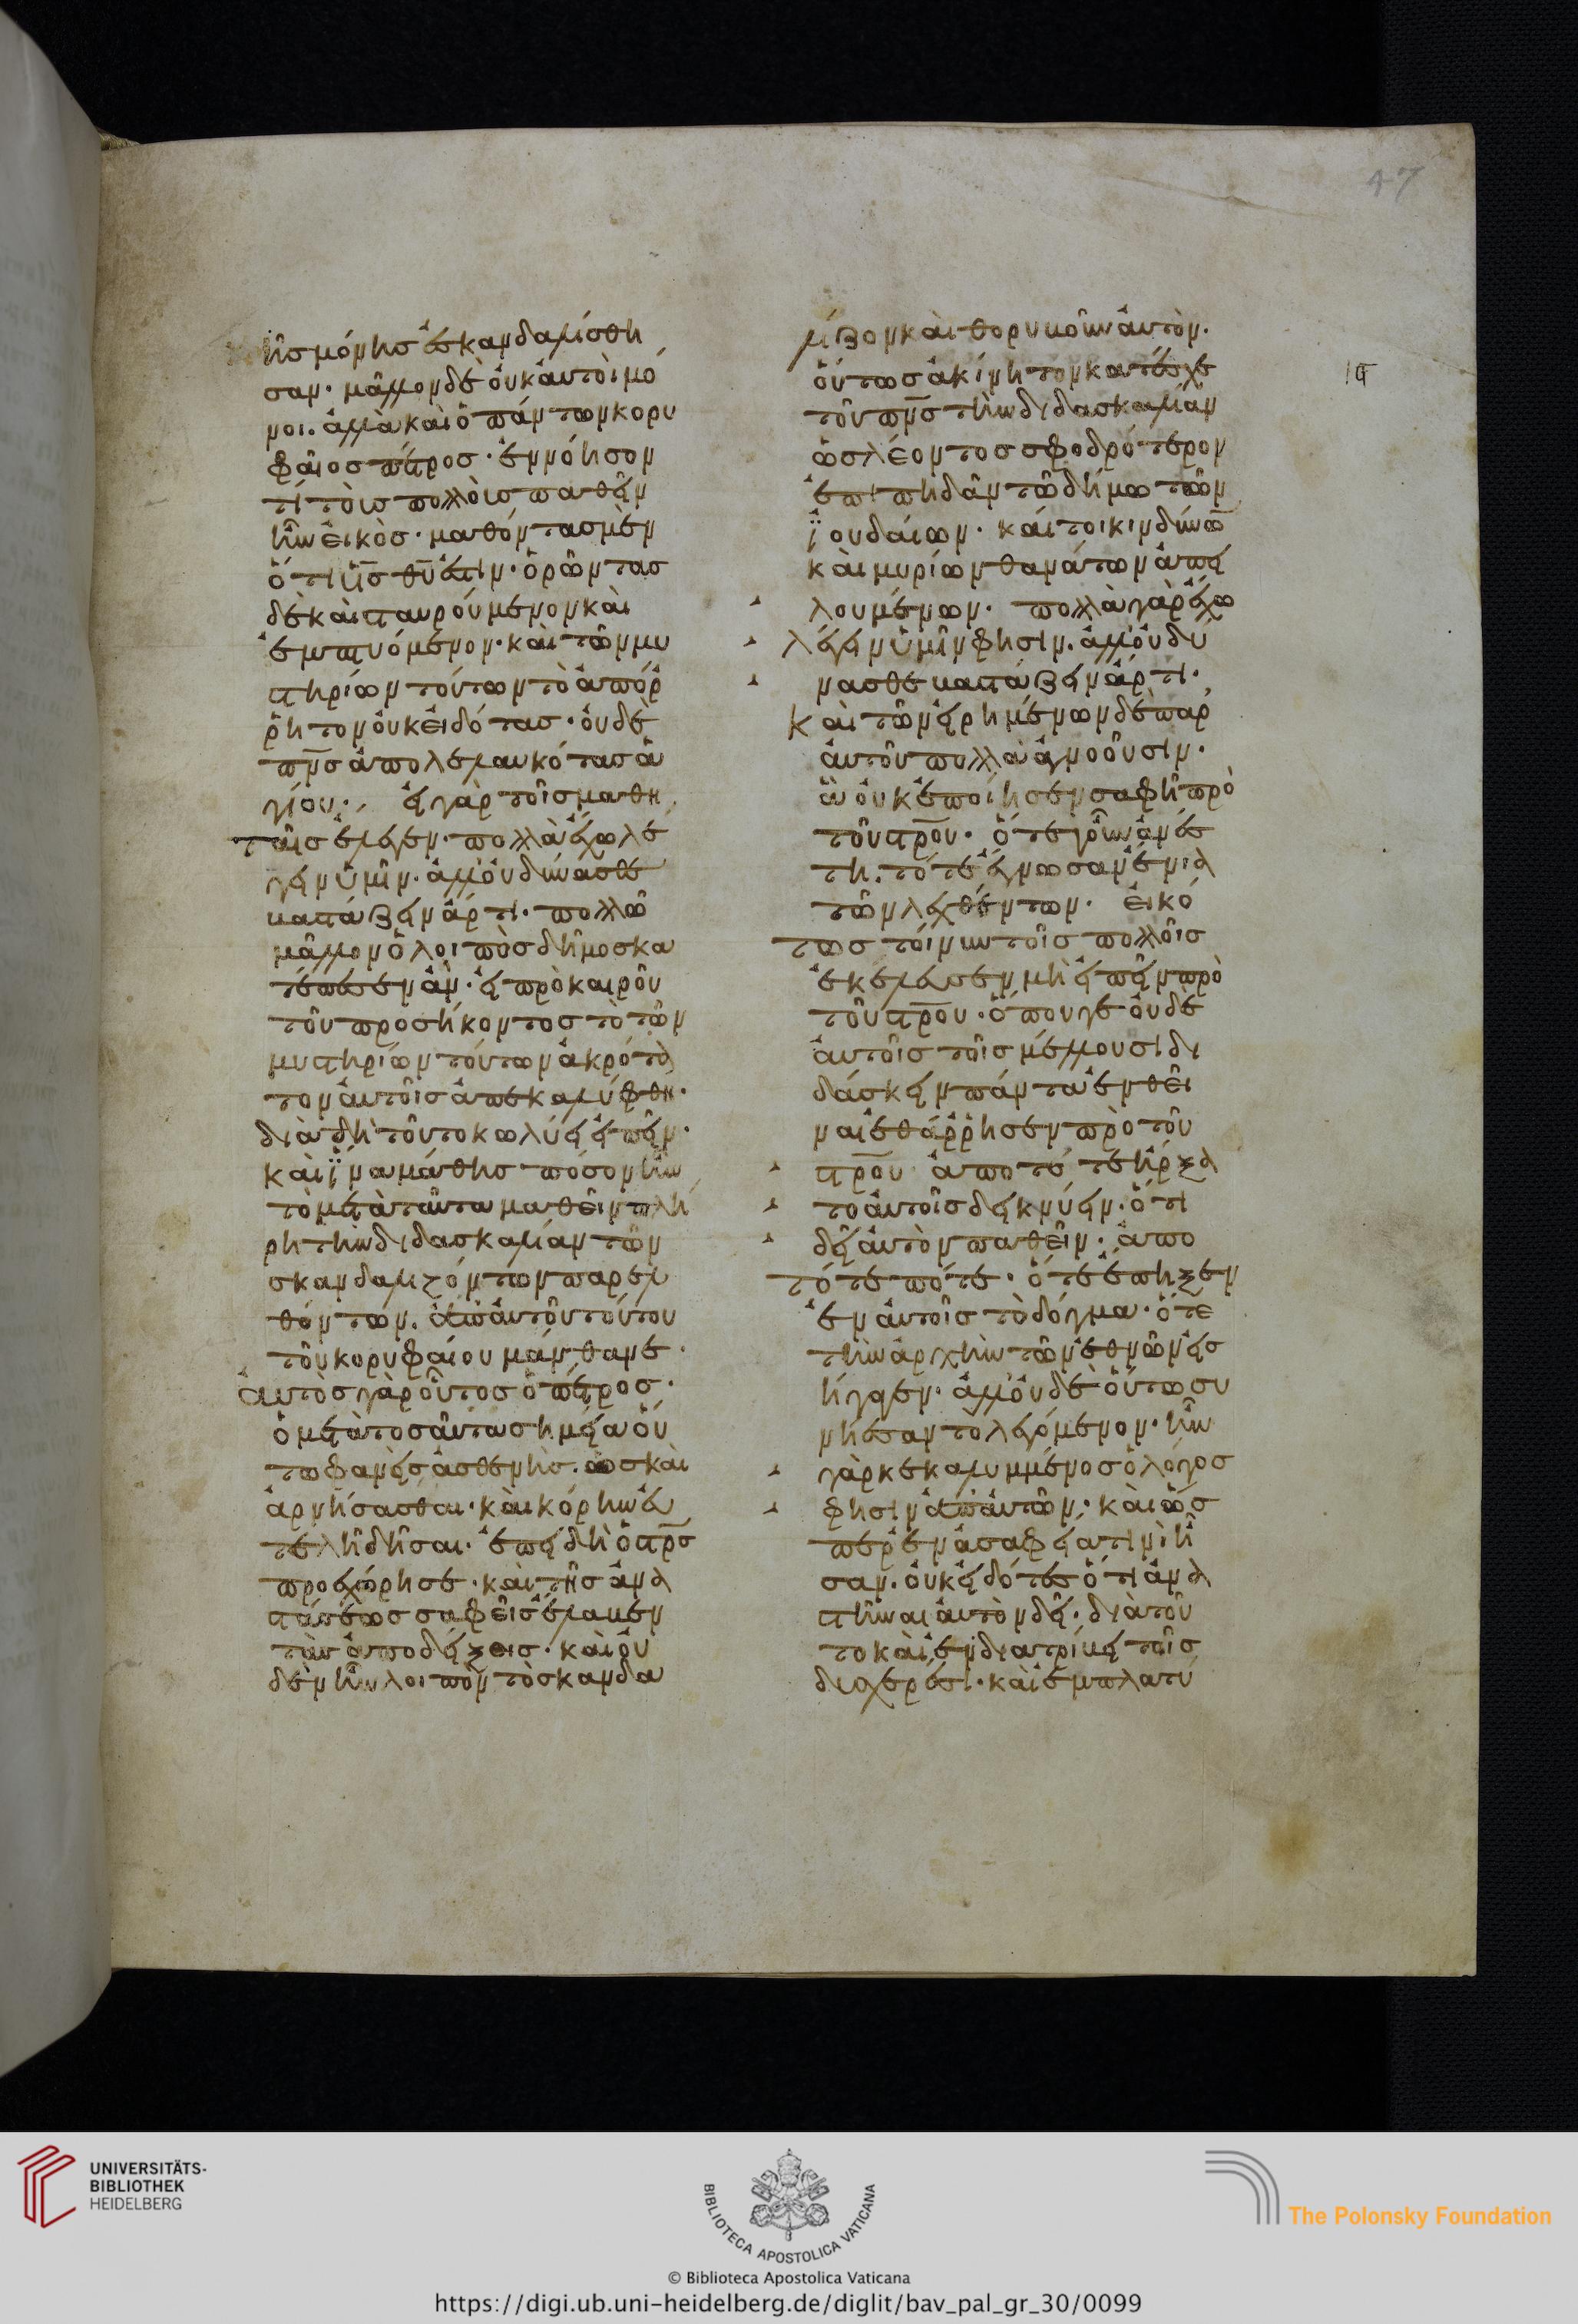 ῆς μόνης ἐσκανδαλίσθη
σαν· μᾶλλον δὲ οὐκ αὐτοὶ μό
νοι. ἀλλὰ καὶ ὁ πάντων κορυ
φαῖος πέτρος· ἐννόησον
τί τοὺς πολλοὺς παθεῖν
ἦν εἰκὸς· μαθόντας μὲν
ὅτι υ̅ς̅ θ̅υ̅ ἐστιν· ὁρῶντας
δὲ καὶ σταυρούμενον καὶ
ἐμπτυόμενον· καὶ τῶν μυ
στηρίων τούτων τὸ ἀπόρ
ρητον οὐκ εἰδότας· οὐδὲ
π̅ν̅ς̅ ἀπολελαυκότας ἁ
γίου· εἰ γὰρ τοῖς μαθη
ταῖς ἔλεγεν· πολλὰ ἔχω λέ
γειν ὑμῖν· ἀλλ' οὐ δύνασθε
βαστάζειν ἄρτι· πολλῶ
μᾶλλον ὁ λοιπὸς δῆμος κα
τέπεσεν ἂν· εἰ πρὸ καιροῦ
τοῦ προσήκοντος τὸ τῶν
μυστηρίων τούτων ἀκρότα
τον αὐτοῖς ἀπεκαλύφθη·
διὰ δὴ τοῦτο κωλύει εἰπεῖν·
καὶ ἵνα μάθης πόσον ἦν
τὸ μετὰ ταῦτα μαθεῖν πλή
ρη τὴν διδασκαλίαν τῶν
σκανδαλιζόντων παρελ
θόντων. ἀπ' αὐτοῦ τούτου
τοῦ κορυφαίου μάνθανε·
αὐτὸς γὰρ οὗτος ὁ πέτρος·
ὁ μετὰ τοσαῦτα σημεῖα οὕ
τω φανεὶς ἀσθενὴς. ὡς καὶ
ἀρνήσασθαι· καὶ κόρην εὐ
τελῆ δεῖσαι· ἐπειδὴ ὁ στ̅ρ̅ς̅
προεχώρησε· καὶ τῆς ἀνα
στάσεως σαφεῖς ἔλαβεν
τὰς ἀποδείξεις· καὶ οὐ
δὲν ἦν λοιπὸν τὸ σκανδα
λίζον καὶ θορυβοῦν αὐτὸν·
οὕτως ἀκίνητον κατέσχε
τοῦ π̅ν̅ς̅ τὴν διδασκαλίαν
ὡς λέοντος σφοδρότερον
ἐπιπηδᾶν τῶ δήμω τῶν
ἰουδαίων· καίτοι κινδύνω̅
καὶ μυρίων θανάτων ἀπει
λουμένων· πολλὰ γὰρ ἔχω
λέγειν ὑμῖν φησιν. ἀλλ' οὐ δύ
νασθε βαστάζειν ἄρτι·
καὶ τῶν εἰρημένων δὲ παρ'
αὐτοῦ πολλὰ ἀγνοοῦσιν·
ἃ οὐκ ἐποίησεν σαφῆ πρὸ
τοῦ στ̅ρ̅ου· ὅτε γοῦν ἀνέσ
τη. τότε ἔγνωσαν ἔνια
τῶν λεχθέντων· εἰκό
τως τοίνυν τοῖς πολλοῖς
ἐκέλευσεν μὴ εἰπεῖν πρὸ
τοῦ στ̅ρ̅ου· ὅπουγε οὐδὲ
αὐτοῖς τοῖς μέλλουσι δι
δάσκειν πάντα ἐνθεῖ
ναι ἐθάρρησεν πρὸ τοῦ
στ̅ρ̅ου· ἀπὸ τότε ἤρξα
το αὐτοῖς δεικνύειν· ὅτι
δεῖ αὐτὸν παθεῖν· ἀπὸ
τότε πότε· ὅτε ἔπηξεν
ἐν αὐτοῖς τὸ δόγμα· ὅτε
τὴν ἀρχὴν τῶν ἐθνῶν εἰσ
ήγαγεν· ἀλλ' οὐδὲ οὕτω συ
νήεσαν τὸ λεγόμενον· ἦν
γὰρ κεκαλυμμένος ὁ λόγος
φησὶν ἀπ' αὐτῶν· καὶ ὥσ
περ ἐν ἀσαφείᾳ τινὶ ἦ
σαν. οὐκ εἰδότες ὅτι ἀνα
στῆναι αὐτὸν δεῖ· διὰ τοῦ
το καὶ ἐνδιατρίβει τοῖς
δυσχερέσι· καὶ ἐμπλατύ
47
UNIVERSITÄTS-
BIBLIOTHEK
HEIDELBERG
BIBLIOTECA APOSTOLICA VATICANA
The Polonsky Foundation
© Biblioteca Apostolica Vaticana
https://digi.ub.uni-heidelberg.de/diglit/bav_pal_gr_30/0099